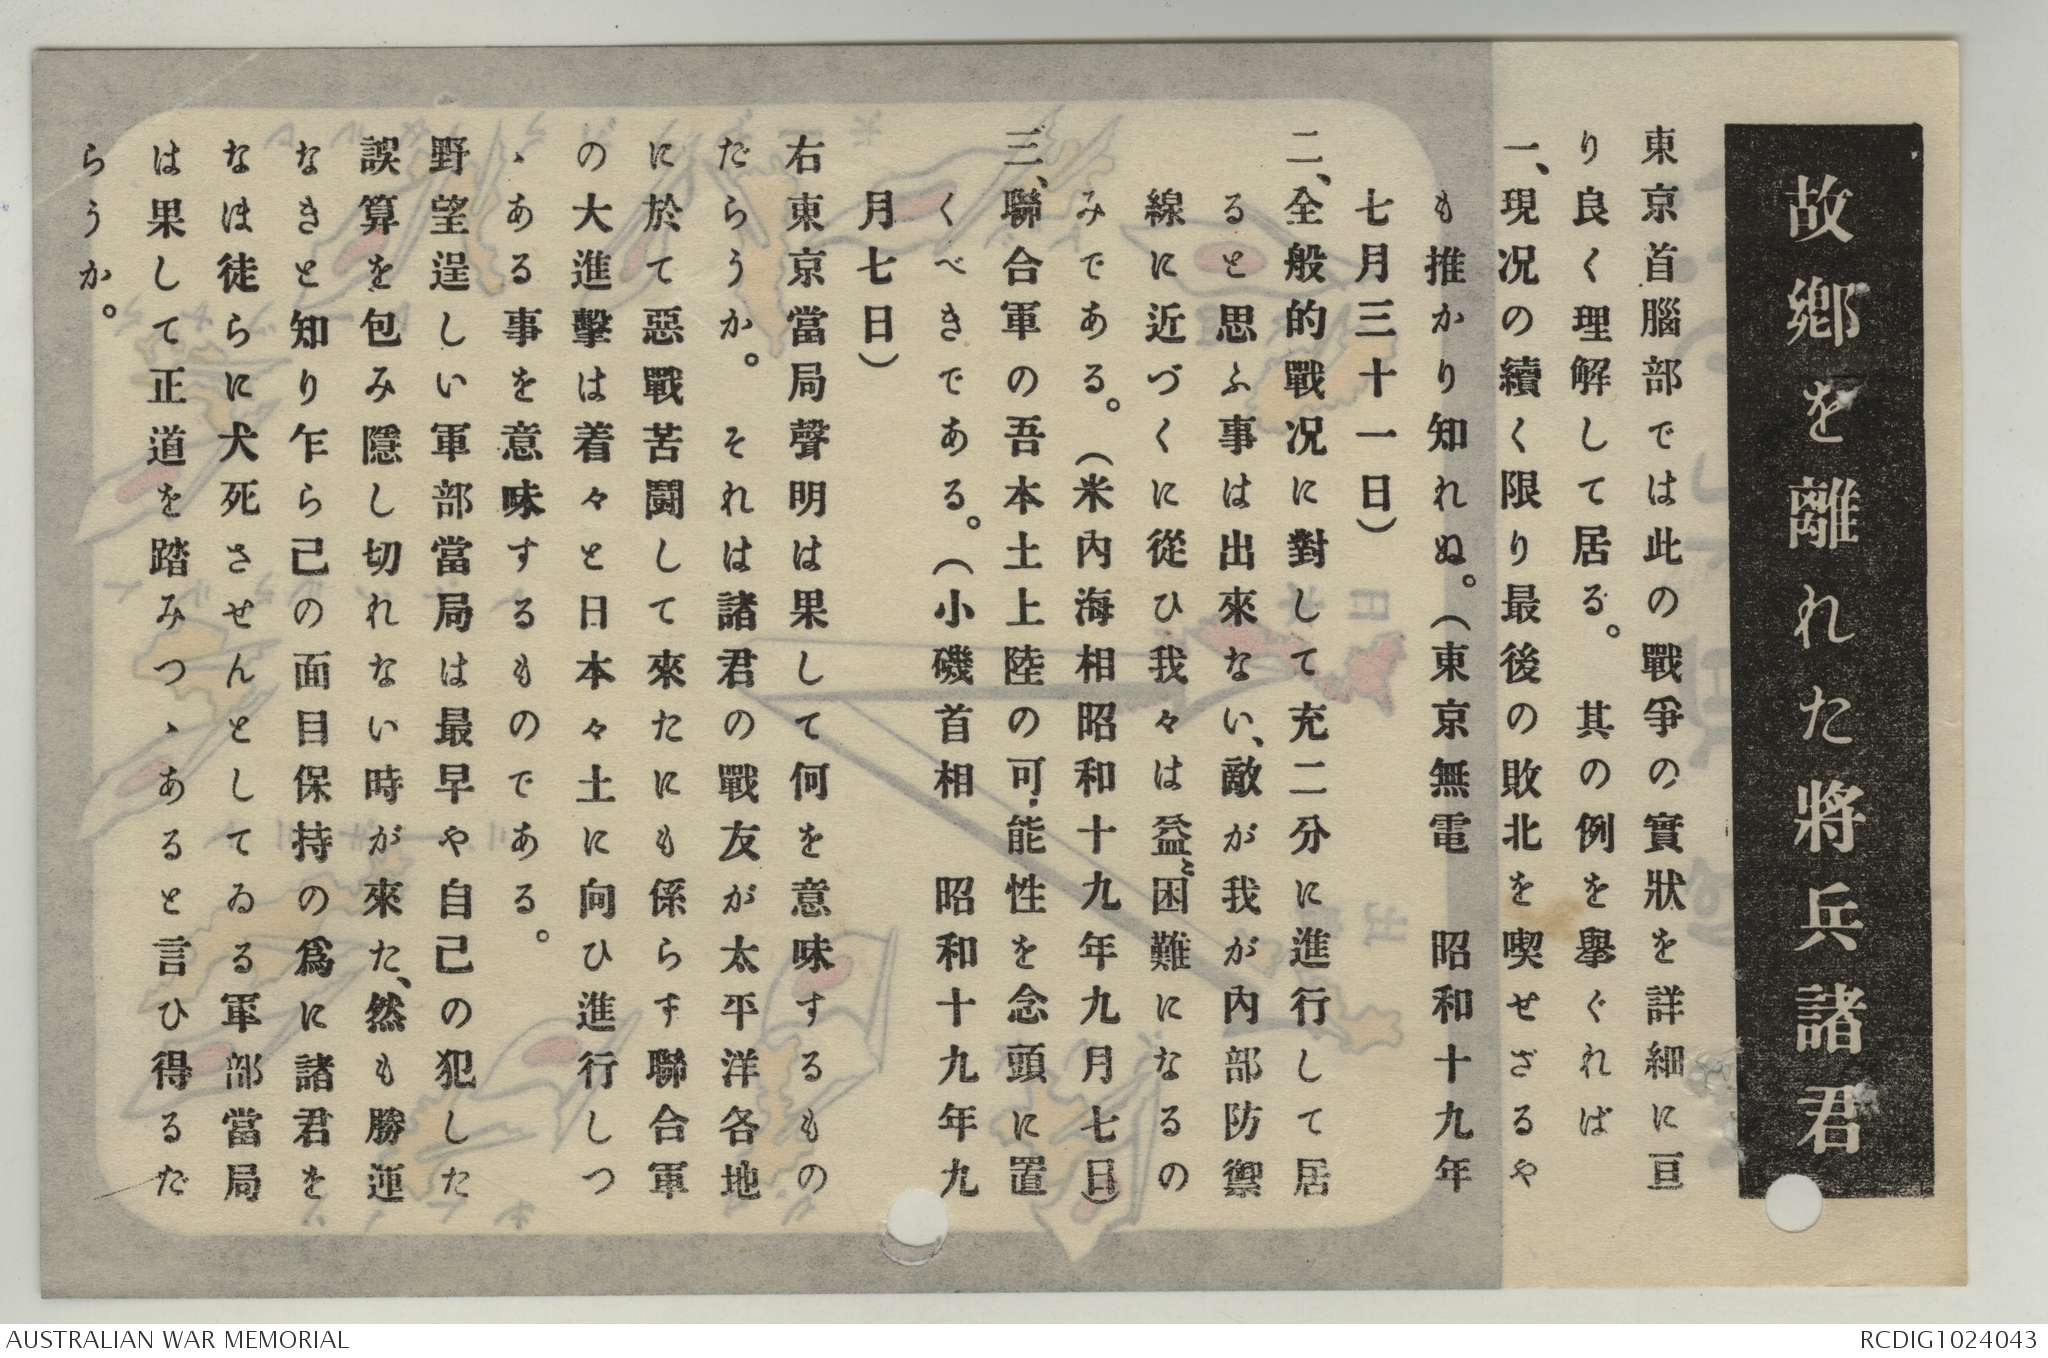 故鄕を離れた將兵諸君
東京首腦部では此の戰爭の實狀を詳細に亘
り良く理解して居る。其の例を擧ぐれば
一、現况の續く限り最後の敗北を喫せざるや
も推かり知れぬ。(東京無電　昭和十九年
七月三十一日)
二、全般的戰况に對して充二分に進行して居
ると思ふ事は出來ない、敵が我が內部防禦
線に近づくに從ひ我々は益々困難になるの
みである。(米內海相昭和十九年九月七日)
三、聯合軍の吾本土上陸の可能性を念頭に置
くべきである。(小磯首相　昭和十九年九
月七日)
右東京當局聲明は果して何を意味するもの
だらうか。それは諸君の戰友が太平洋各地
に於て惡戰苦鬪して來たにも係らず聯合軍
の大進擊は着々と日本々土に向ひ進行しつ
ゝある事を意味するものである。
野望逞しい軍部當局は最早や自己の犯した
誤算を包み隱し切れない時が來た、然も勝運
なきと知り乍ら己の面目保持の爲に諸君を
なほ徒らに犬死させんとしてゐる軍部當局
は果して正道を踏みつゝあると言ひ得るだ
らうか。
AUSTRALIAN WAR MEMORIAL
RCDIG1024043